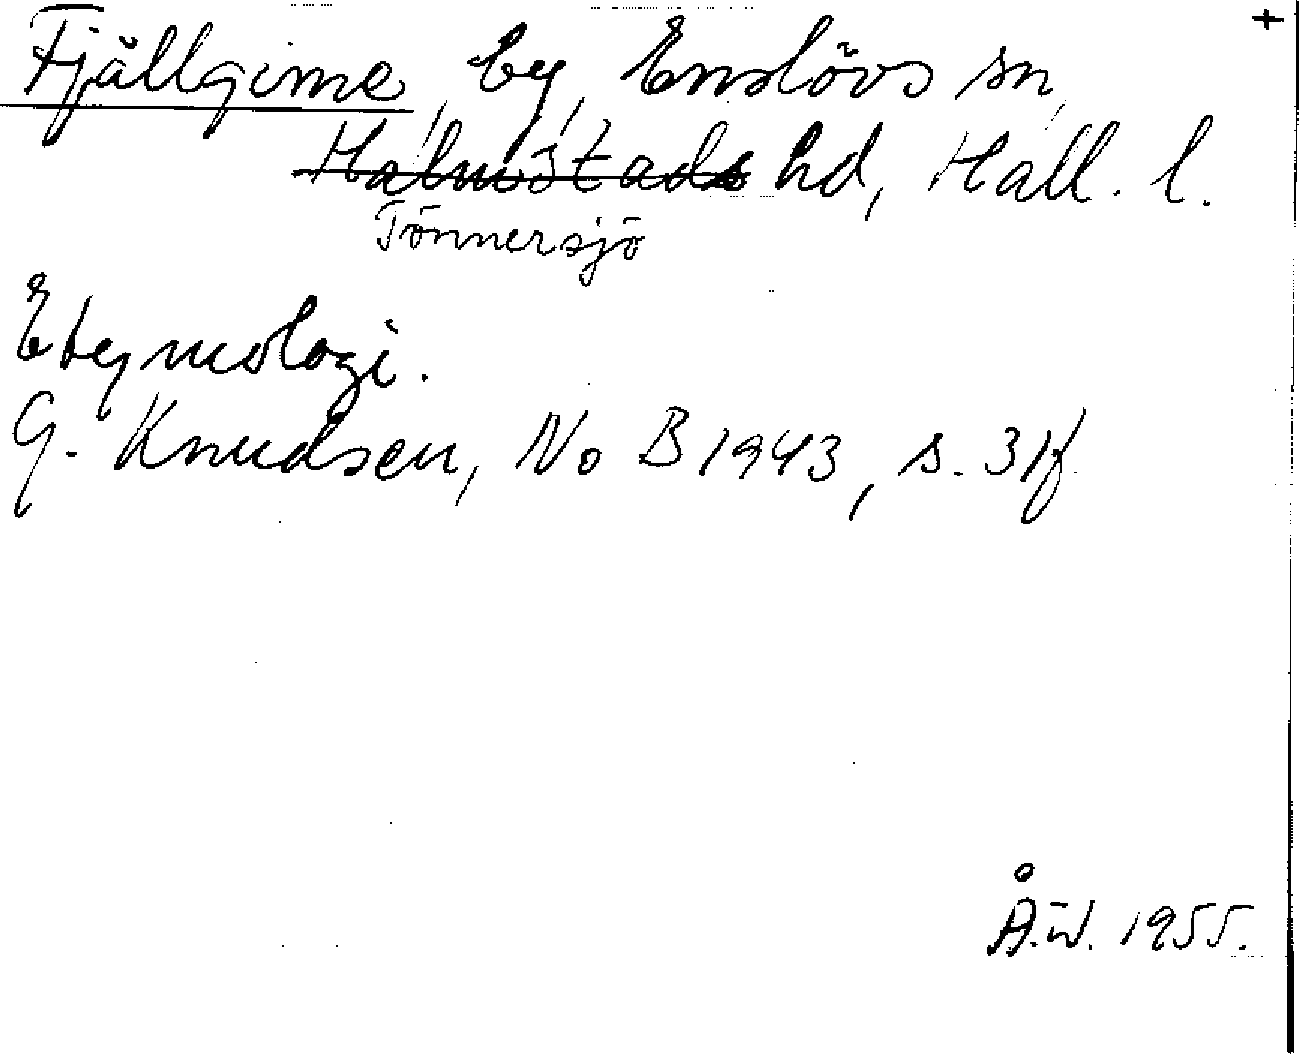 +
Fjällgime, by, Enslövs sn,
Halmstads hd, Hall. l.
Tönnersjö
Etymologi.
G. Knudsen, No B 1943, s. 31f
Å.W. 1955.